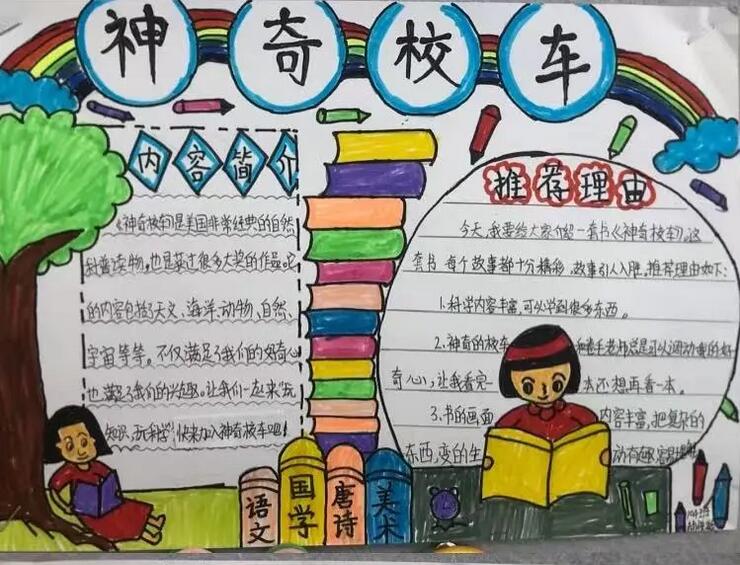 神奇校车
内容简介
《神奇校车》是美国非常经典的自然
科普读物,也是获过很多大奖的作品。它
的内容包括了天文、海洋、动物、自然、
宇宙等等。不仅满足了我们的好奇心
也满足了我们的兴趣。让我们一起来"玩
知识、玩科学",快来加入神奇校车吧!
推荐理由
今天,我要给大家介绍一套书《神奇校车》。这
套书 每个故事都十分精彩,故事引人入胜。推荐理由如下:
1.科学内容丰富,可以学到很多东西。
2.神奇的校车 和卷毛老师总是可以调动我的好
奇心,让我看完 本还想再看一本。
3.书的画面 内容丰富,把复杂的
东西,变的生 动有趣
语文
国学
唐诗
美术